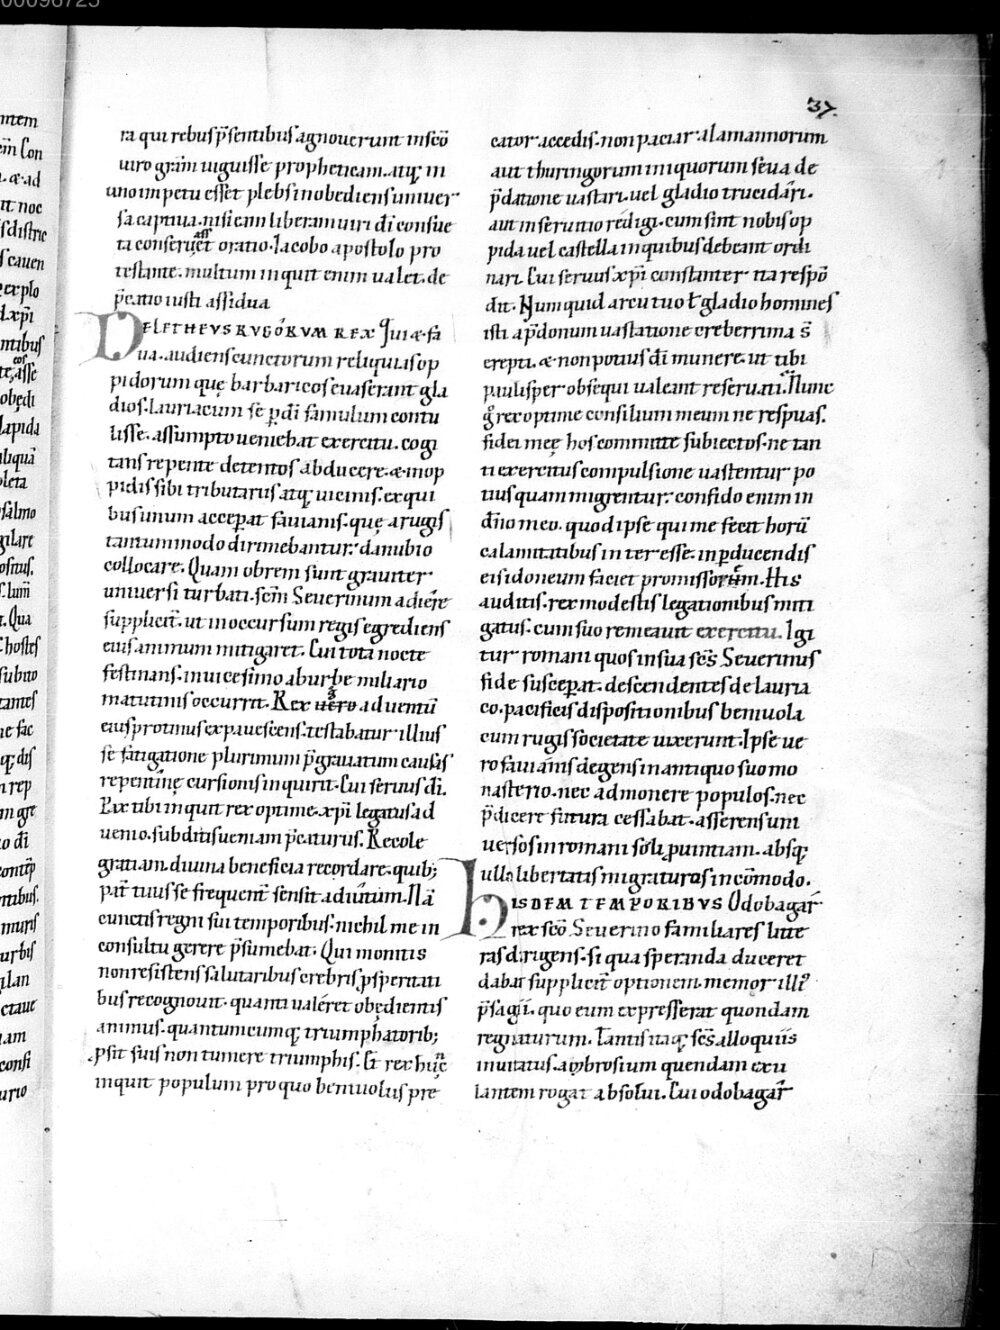 00096725
37.
ra qui rebus p̄sentibus agnouerunt in scō
uiro grām uiguisse propheticam. atq; in
uno impetu esset plebs inobediens uniuer
sa captiua. nisi eam liberam uiri dī consue
ta conseruasset oratio. Iacobo apostolo pro
testante. multum inquit enim ualet. de
p̄catio iusti assidua
DELETHEVS RVGORVM REX Qui & fa
ua. audiens cunctorum reliquias op
pidorum quę barbaricos euaserant gla
dios. Lauriacum se p̲ dī famulum contu
lisse. assumpto ueniebat exercitu. cogi
tans repente detentos abducere. & in op
pidis sibi tributariis atq; uicinis. ex qui
bus unum acceperat fauianis. que a rugis
tantummodo dirimebantur. danubio
collocare. Quam obrem sunt grauiter
uniuersi turbati. scm̄ Seuerinum adiēre
supplicit̄. ut in occursum regis egrediens
eius animum mitigaret. Cui tota nocte
festinans. in uicesimo ab urbe miliario
matutinis occurrit. Rex uero aduentū
eius protinus expauescens. testabatur illius
se fatigatione plurimum p̄grauatum causas
repentinę cursionis inquirit. Cui seruus dī.
Pax tibi inquit rex optime. xp̄i legatus ad
uenio. subditis ueniam p̄caturus. Recole
gratiam. diuina beneficia recordare. quib;
pat̄ tuus se frequent̄ sensit adiutum. Nā
cunctis regni sui temporibus. nichil me in
consultu gerere p̄sumebat. Qui monitis
non resistens salutaribus crebris p̱speritati
bus recognouit. quanti ualeret obędientis
animus. quantumcumq; triumphatorib;
p̱sit suis non tumere triumphis. Et rex hunc
inquit populum pro quo beniuolus pre
cator accedis. non paciar alamannorum
aut thuringorum iniquorum seua de
p̄datione uastari. uel gladio trucidari.
aut in seruitio redigi. cum sint nobis op
pida uel castella in quibus debeant ordi
nari. Cui seruus xp̄i constanter ita respō
dit. Numquid arcu tuo ł gladio homines
isti a p̄donum uastatione creberrima s̄
erepti. & non potius dī munere. ut tibi
paulisper obsequi ualeant reseruati. Nunc
g̊ rex optime consilium meum ne respuas.
fidei meę hos committe subiectos. ne tan
ti exercitus compulsione uastentur po
tius quam migrentur. confido enim in
dn̄o meo. quod ipse qui me fecit horū
calamitatibus in ter esse. in p̲ducendis
eis idoneum faciet promissorem. His
auditis. rex modestis legationibus miti
gatus. cum suo remeauit exercitu. Igi
tur romani quos in sua scs̄ Seuerinus
fide susceperat. descendentes de lauria
co. pacificis dispositionibus beniuola
cum rugis societate uixerunt. Ipse ue
ro fauianis degens in antiquo suo mo
nasterio. nec admonere populos. nec
p̄dicere futura cessabat. asserens uni
uersos in romani soli p̱uintiam. absq;
ulla libertatis migraturos incōmodo.
hISDEM TEMPORIBVS Odobagar̄
rex scō Seuerino familiares litte
ras dirigens. si qua speranda duceret
dabat supplicit̄ optionem. memor illiꝰ
p̄sagii. quo eum expresserat quondam
regnaturum. Tantis itaq; scs̄ alloquiis
inuitatus. ambrosium quendam exu
lantem rogat absolui. Cui odobagar̄